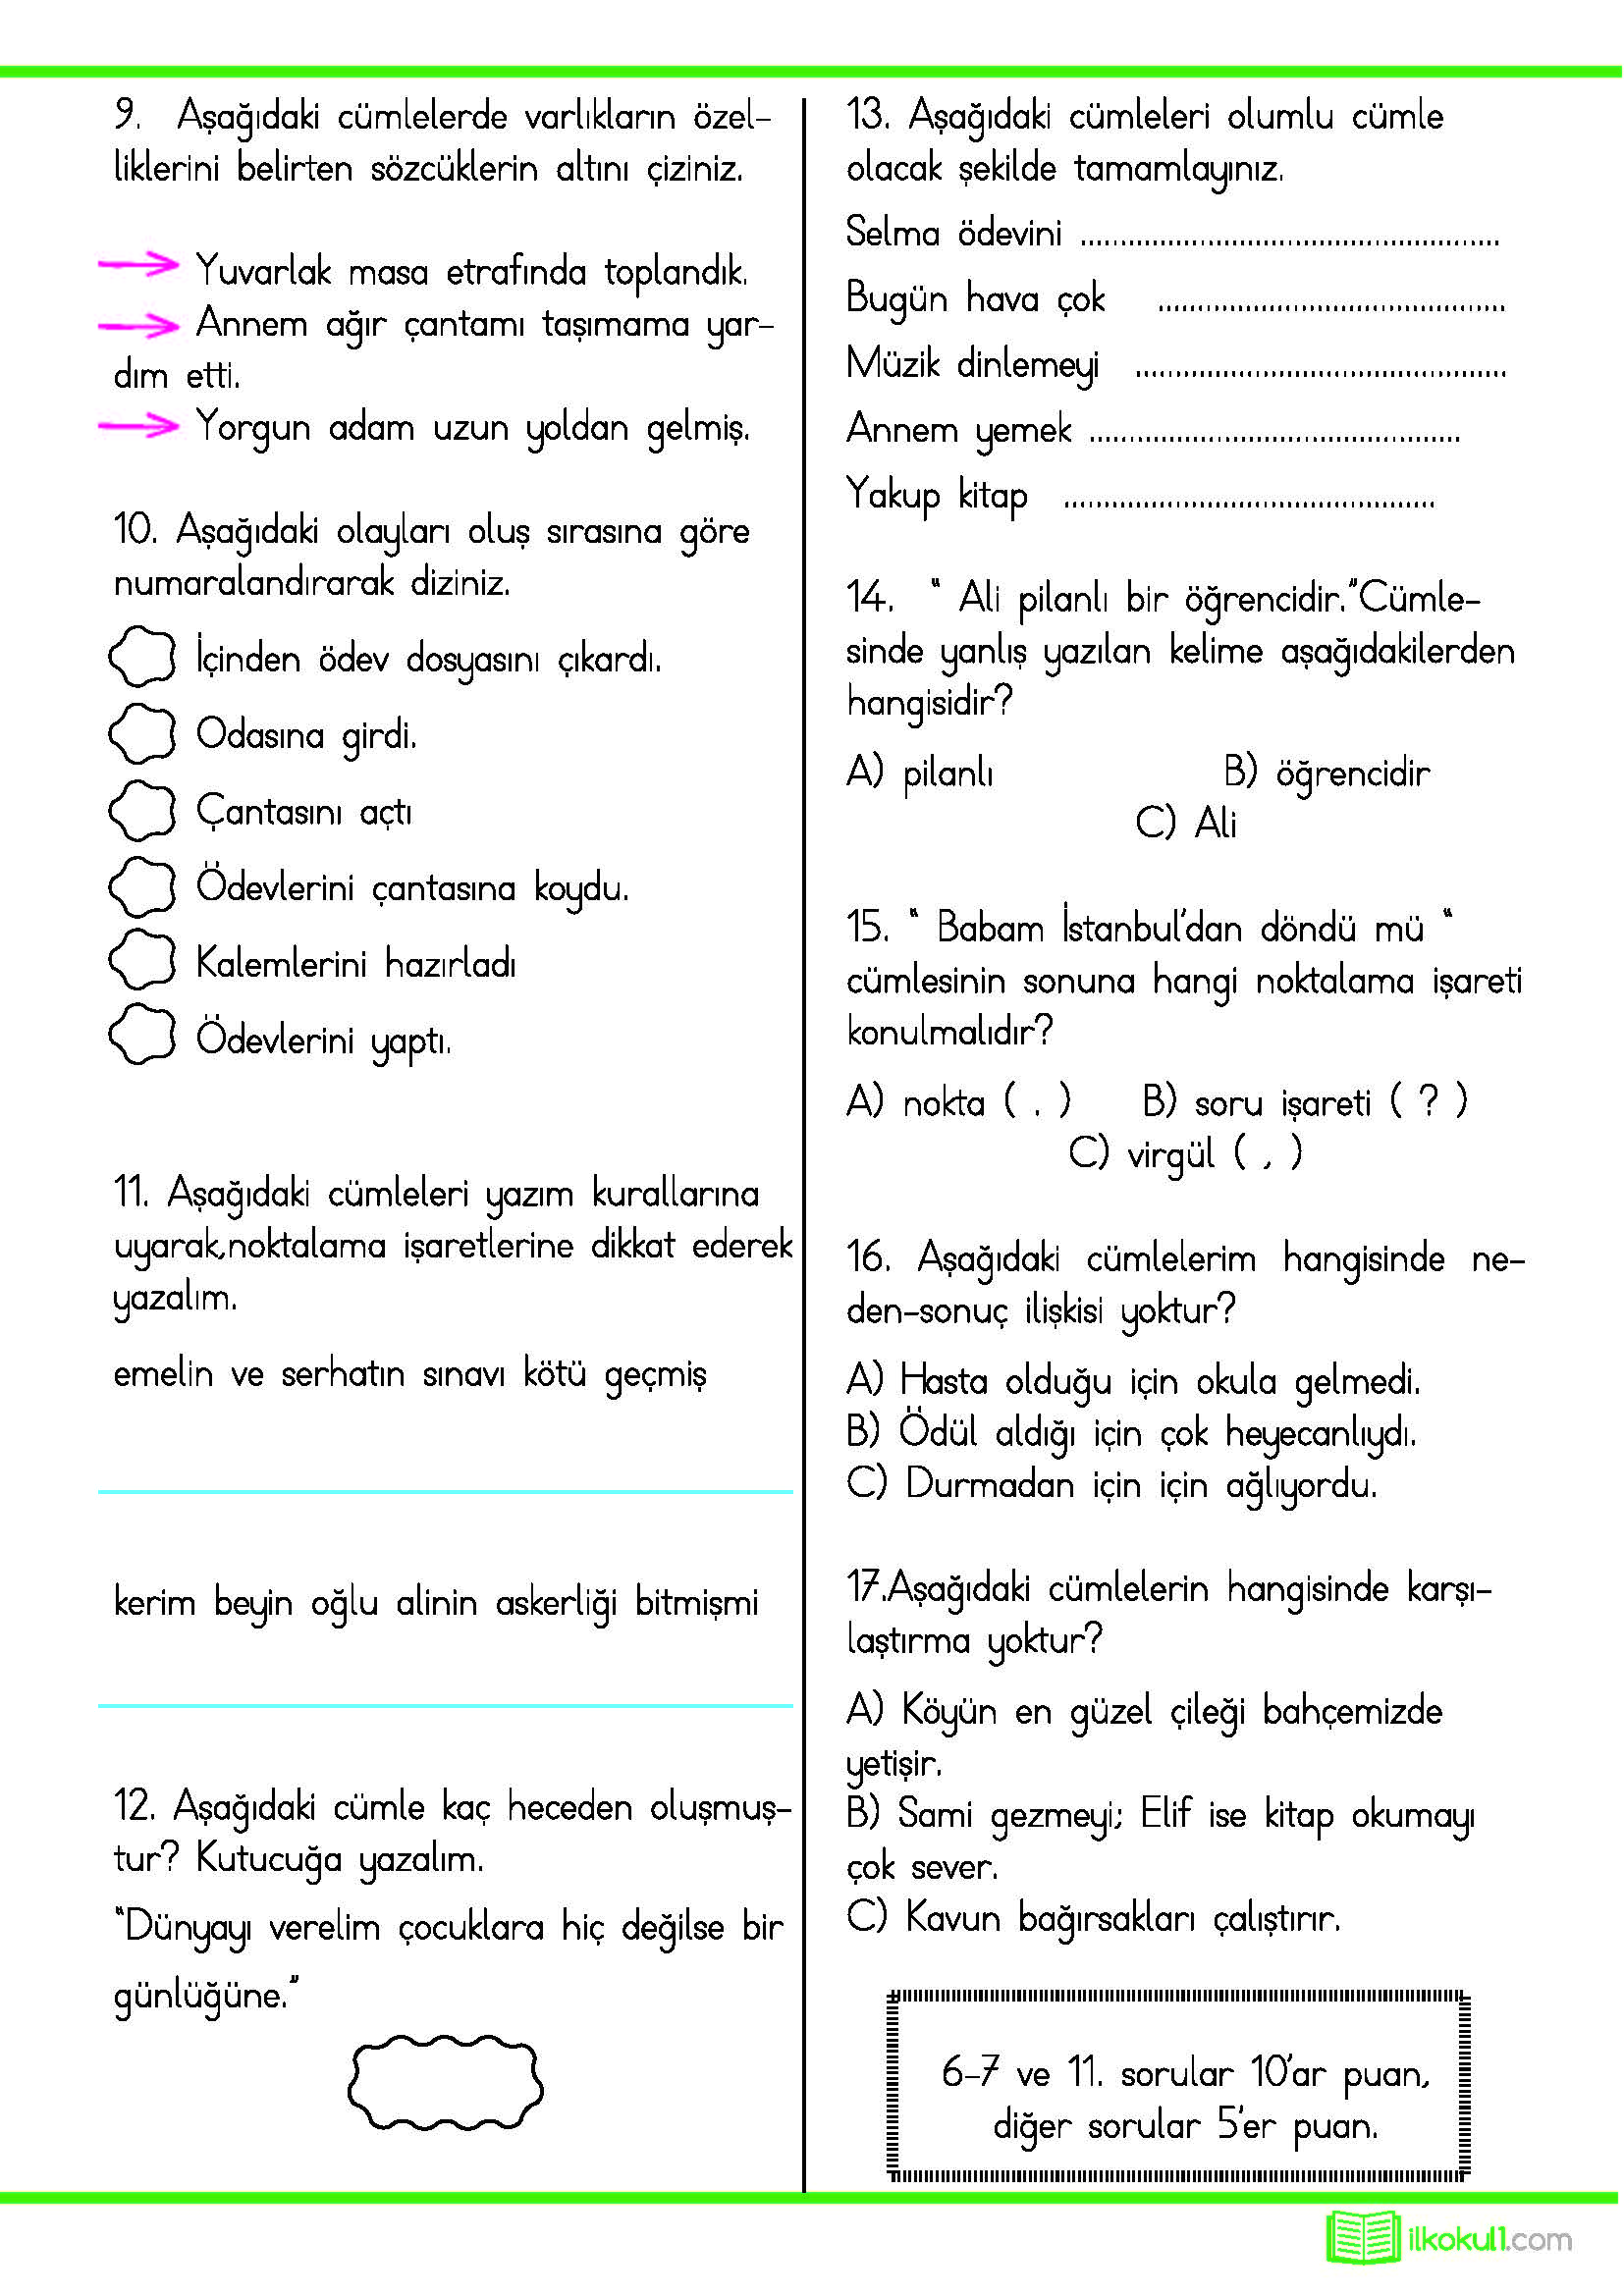 9. Aşağıdaki cümlelerde varlıkların özel-
liklerini belirten sözcüklerin altını çiziniz.
Yuvarlak masa etrafında toplandık.
Annem ağır çantamı taşımama yar-
dım etti.
Yorgun adam uzun yoldan gelmiş.
10. Aşağıdaki olayları oluş sırasına göre
numaralandırarak diziniz.
İçinden ödev dosyasını çıkardı.
Odasına girdi.
Çantasını açtı
Ödevlerini çantasına koydu.
Kalemlerini hazırladı
Ödevlerini yaptı.
11. Aşağıdaki cümleleri yazım kurallarına
uyarak,noktalama işaretlerine dikkat ederek
yazalım.
emelin ve serhatın sınavı kötü geçmiş
kerim beyin oğlu alinin askerliği bitmişmi
12. Aşağıdaki cümle kaç heceden oluşmuş-
tur? Kutucuğa yazalım.
“Dünyayı verelim çocuklara hiç değilse bir
günlüğüne.”
13. Aşağıdaki cümleleri olumlu cümle
olacak şekilde tamamlayınız.
Selma ödevini ....................................................
Bugün hava çok ...........................................
Müzik dinlemeyi ..............................................
Annem yemek ..............................................
Yakup kitap ..............................................
14. “ Ali pilanlı bir öğrencidir.”Cümle-
sinde yanlış yazılan kelime aşağıdakilerden
hangisidir?
A) pilanlı B) öğrencidir
C) Ali
15. “ Babam İstanbul’dan döndü mü “
cümlesinin sonuna hangi noktalama işareti
konulmalıdır?
A) nokta ( . ) B) soru işareti ( ? )
C) virgül ( , )
16. Aşağıdaki cümlelerim hangisinde ne-
den-sonuç ilişkisi yoktur?
A) Hasta olduğu için okula gelmedi.
B) Ödül aldığı için çok heyecanlıydı.
C) Durmadan için için ağlıyordu.
17.Aşağıdaki cümlelerin hangisinde karşı-
laştırma yoktur?
A) Köyün en güzel çileği bahçemizde
yetişir.
B) Sami gezmeyi; Elif ise kitap okumayı
çok sever.
C) Kavun bağırsakları çalıştırır.
6-7 ve 11. sorular 10’ar puan,
diğer sorular 5’er puan.
ilkokul1.com